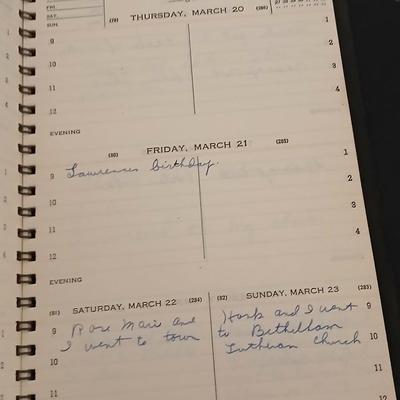 FRI.
SAT.
SUN.
(79) THURSDAY, MARCH 20 (286)
9 1
10 2
11 3
12 4
EVENING
(80) FRIDAY, MARCH 21 (285)
9 Lawrences birthday. 1
10 2
11 3
12 4
EVENING
(81) SATURDAY, MARCH 22 (284)
9 Rose Marie and
10 I went to town
11
(82) SUNDAY, MARCH 23 (283)
Hank and I went 9
to Bethlehem
Lutheran Church 10
11